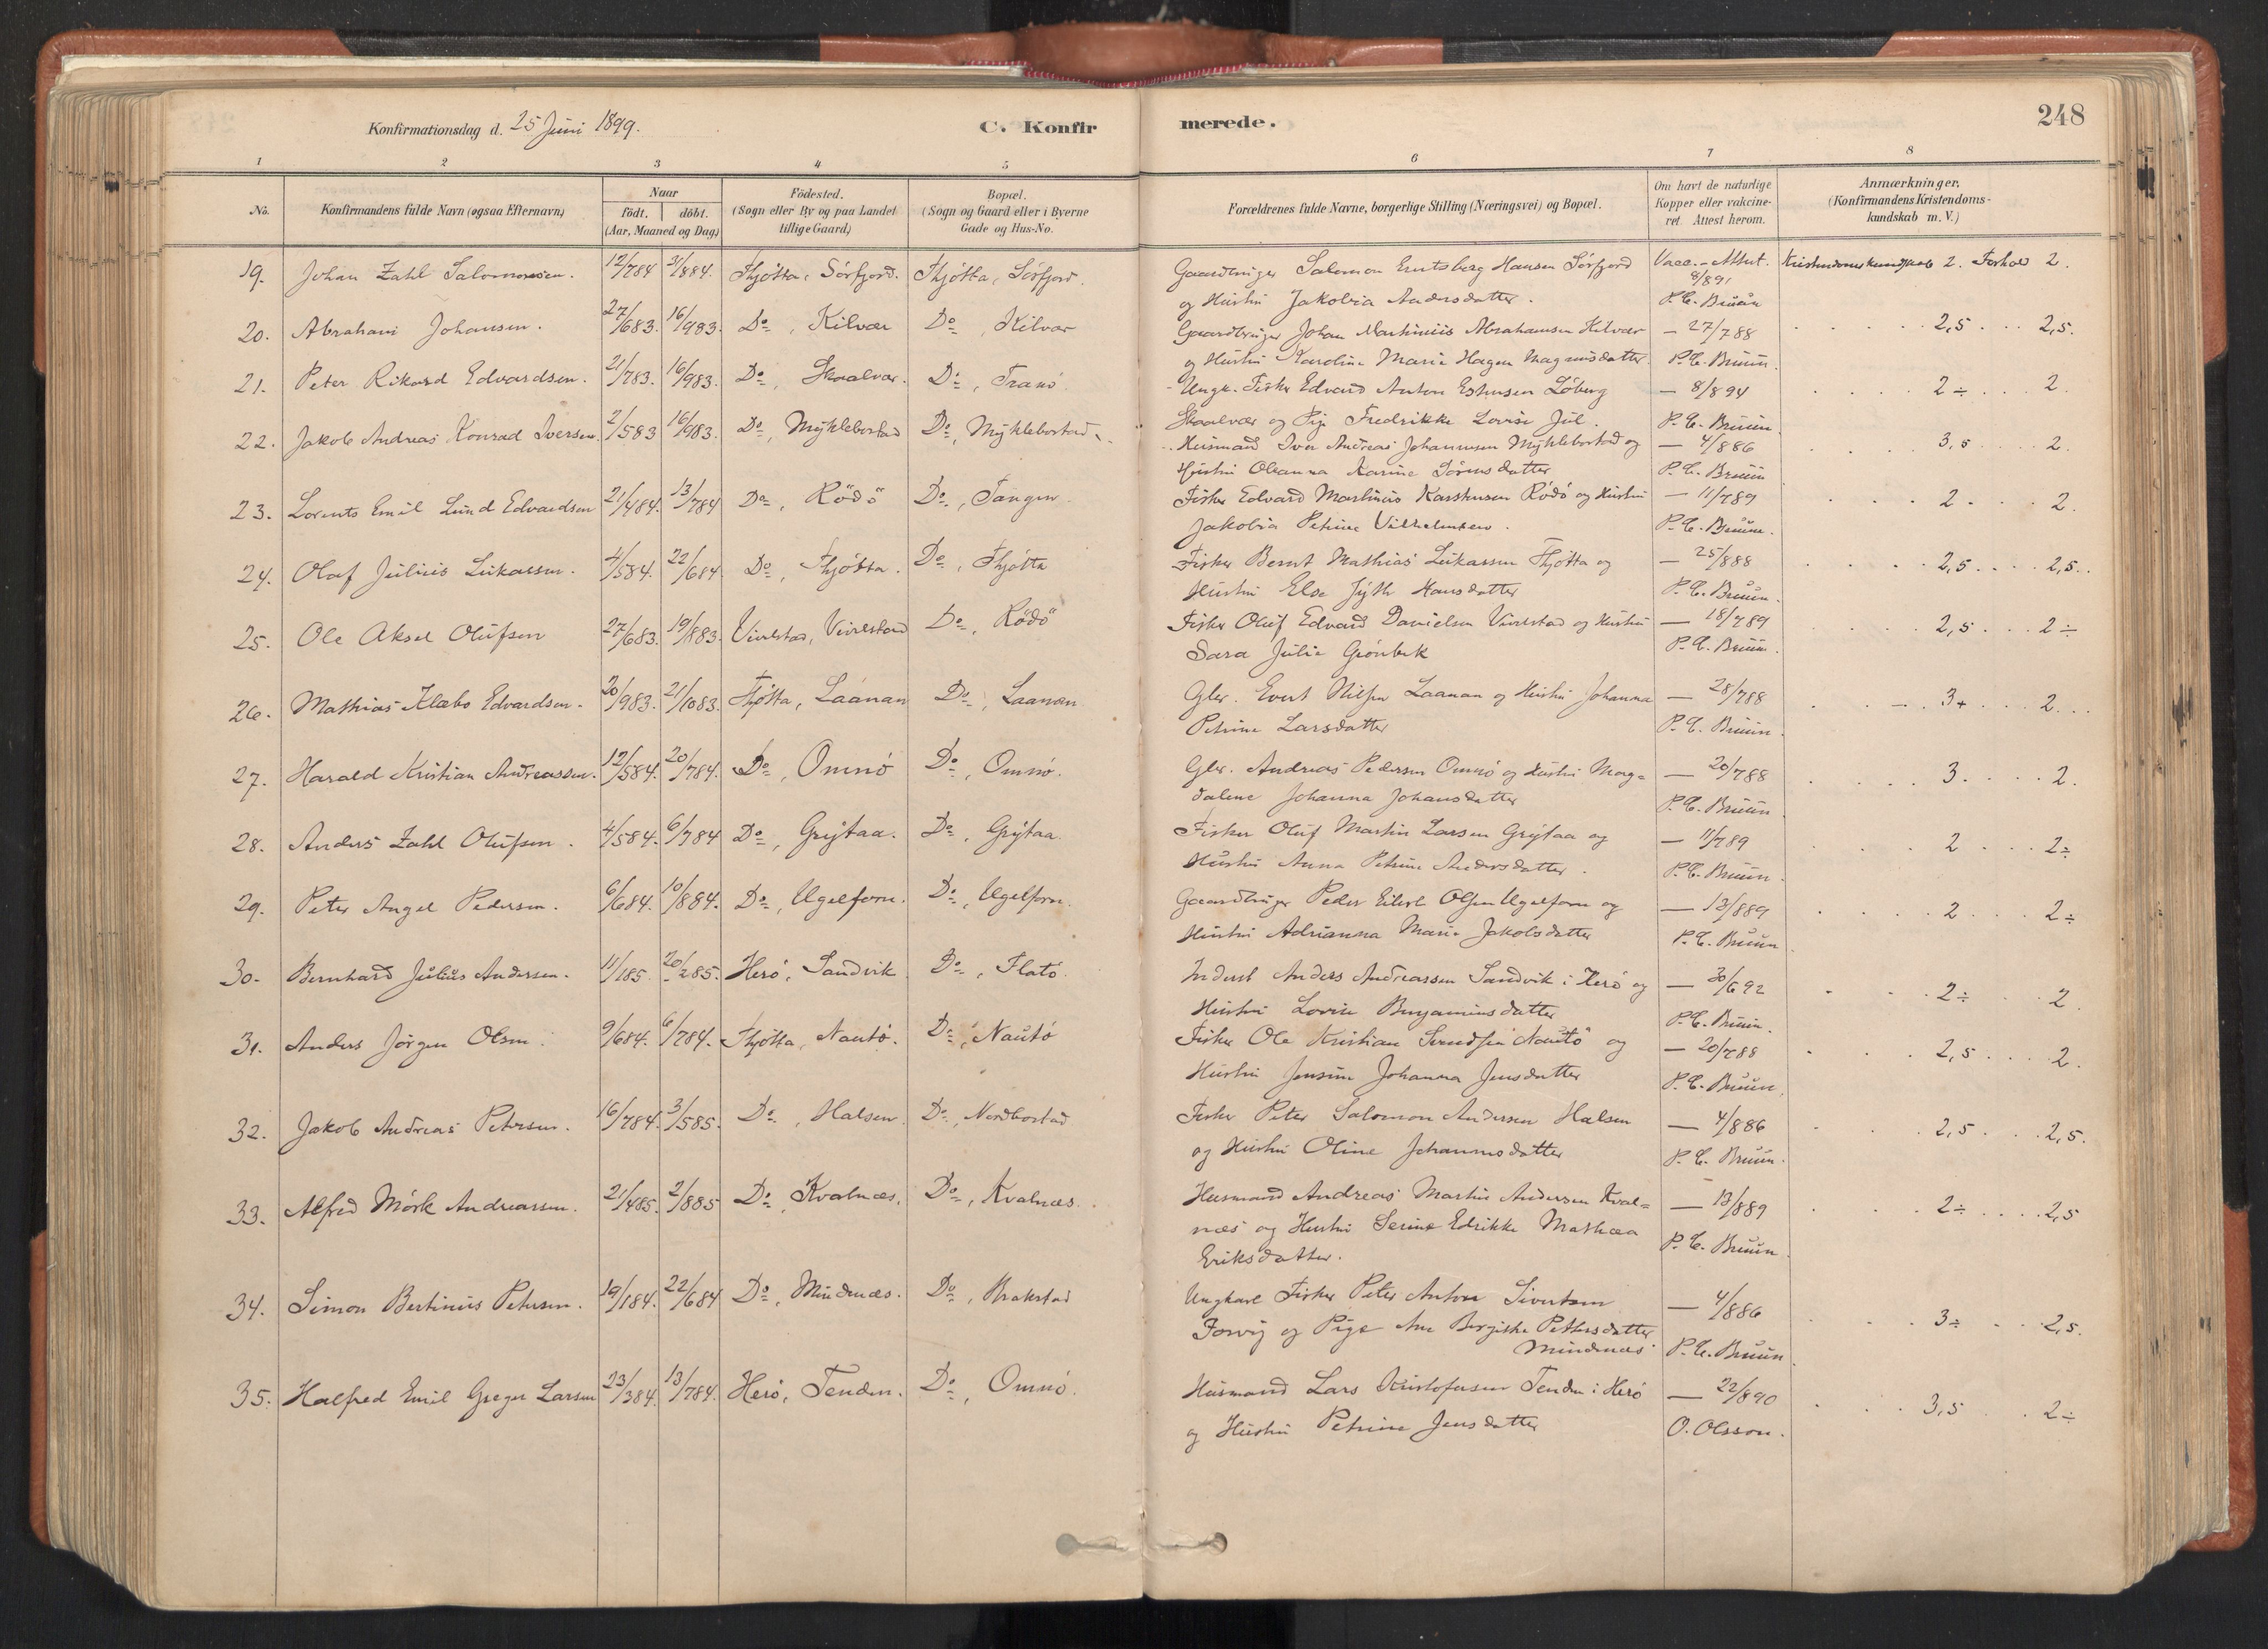 Konfirmationsdag d. 25 Juni 1899.
C. Konfirmerede.
248
1 2 3 4 5 6 7 8
No.
Konfirmandens fulde Navn (ogsaa Efternavn)
Naar
födt. döbt.
(Aar, Maaned og Dag)
Födested.
(Sogn eller By og paa Landet
tillige Gaard)
Bopæl.
(Sogn og Gaard eller i Byerne
Gade og Hus-No.
Forældrenes fulde Navne, borgerlige Stilling (Næringsvei) og Bopæl.
Om havt de naturlige
Kopper eller vakcine-
ret. Attest herom.
Anmærkninger.
(Konfirmandens Kristendoms-
kundskab m. V.)
19. Johan Zahl Salomonsen. 12/784 31/884. Thjötta, Sörfjord. Thjötta, Sörfjord. Gaardbruger Salomon Hansen Sörfjord Vacc.-Attest. Kristendomskundskab 2. Forhold 2.
8/891
og Hustru Jakobia Andersdatter. P. C. Bruun
20. Abraham Johansen. 27/683. 16/983. Do, Kilvær Do, Kilvær Gaardbruger Johan Martinius Abrahamsen Kilvær — 27/788 2,5 2,5.
og Hustru Karoline Marie Hagen Magnusdatter. P. C. Bruun.
21. Peter Rikard Edvardsen. 21/783. 16/983. Do, Skaalvær. Do, Tranö. Ungk. Fisker Edvard Anton Löberg — 8/894 2÷ 2.
Skaalvær og Pige Fredrikke Lovise Jül. P. C. Bruun.
22. Jakob Andreas Konrad Iversen. 2/583 16/983. Do, Myklebostad Do, Myklebostad. Husmand Iver Andreas Johannesen Myklebostad og — 4/886 3,5 2.
Hustru Oleanna Karine Sörensdatter P. C. Bruun
23. Lorents Emil Lund Edvardsen 21/484. 13/784 Do, Rödö Do, Tangen. Fisker Edvard Martinus Karstensen Rödö og Hustru — 11/789 2 2.
Jakobia Petrine Vilhelmsen. P. C. Bruun.
24. Olaf Julius Lukassen. 4/584. 22/684 Do, Thjötta. Do, Thjötta Fisker Bernt Mathias Lukassen Thjötta og — 25/888 2,5 2,5.
Hustru Else Hansdatter P. C. Bruun.
25. Ole Aksel Olufsen 27/683. 19/883. Vivelstad, Vivelstad Do, Rödö Fisker Oluf Edvard Danielsen Vivelstad og Hustru — 18/789 2,5 2÷
Sara Julie Grönbek P. C. Bruun.
26. Mathias Klæbo Edvardsen. 20/983. 21/1083. Thjötta, Laanan Do, Laanan Gbr. Evert Nilsen Laanan og Hustru Johanna — 28/788 3+ 2
Petrine Larsdatter P. C. Bruun.
27. Harald Kristian Andreassen. 12/584. 20/784. Do, Omnö Do, Omnö. Gbr. Andreas Pedersen Omnö og Hustru Mag- — 20/788 3. 2.
dalene Johanna Johansdatter P. C. Bruun
28. Anders Zahl Olufsen. 4/584. 6/784 Do, Grytaa. Do, Grytaa. Fisker Oluf Martin Larsen Grytaa og — 11/789 2 2÷
Hustru Anna Petrine Andersdatter. P. C. Bruun.
29. Peter Angel Pedersen. 6/684. 10/884. Do, Ugelforn. Do, Ugelforn. Gaardbruger Peder Eilert Olsen Ugelforn og — 13/889 2 2÷
Hustru Adrianna Marie Jakobsdatter P. C. Bruun
30. Bernhard Julius Andersen. 11/185. 20/285. Herö, Sandvik Do, Flatö. Inderst Anders Andreassen Sandvik i Herö og — 30/692 2÷ 2.
Hustru Lovise Benjaminsdatter P. C. Bruun.
31. Anders Jörgen Olsen. 9/684. 6/784. Thjötta, Nautö. Do, Nautö Fisker Ole Kristian Svendsen Nautö og — 20/788 2,5 2.
Hustru Jensine Johanna Jensdatter P. C. Bruun.
32. Jakob Andreas Petersen. 16/784. 3/585. Do, Halsen. Do, Nordbostad Fisker Peter Salomon Andersen Halsen — 4/886 2,5 2,5.
og Hustru Oline Johannesdatter P. C. Bruun.
33. Alfred Mörk Andreassen. 21/485. 2/885 Do, Kvalnæs. Do, Kvalnæs. Husmand Andreas Martin Andersen Kval- — 13/889 2÷ 2,5
næs og Hustru Serine Edrikke Mathea P. C. Bruun.
Eriksdatter.
34. Simon Bertinius Petersen. 19/184. 22/684 Do, Mindnæs. Do, Brakstad Ungkarl Fisker Peter Anton Sivertsen — 4/886 3÷ 2,5.
Forvig og Pige Ane Bergitte Petersdatter
Mindnæs P. C. Bruun.
35. Halfred Emil Greger Larsen 23/384. 13/784. Herö, Tenden. Do, Omnö. Husmand Lars Kristofersen Tenden i Herö — 22/890 3,5 2÷
og Hustru Petrine Jensdatter O. Olsson.